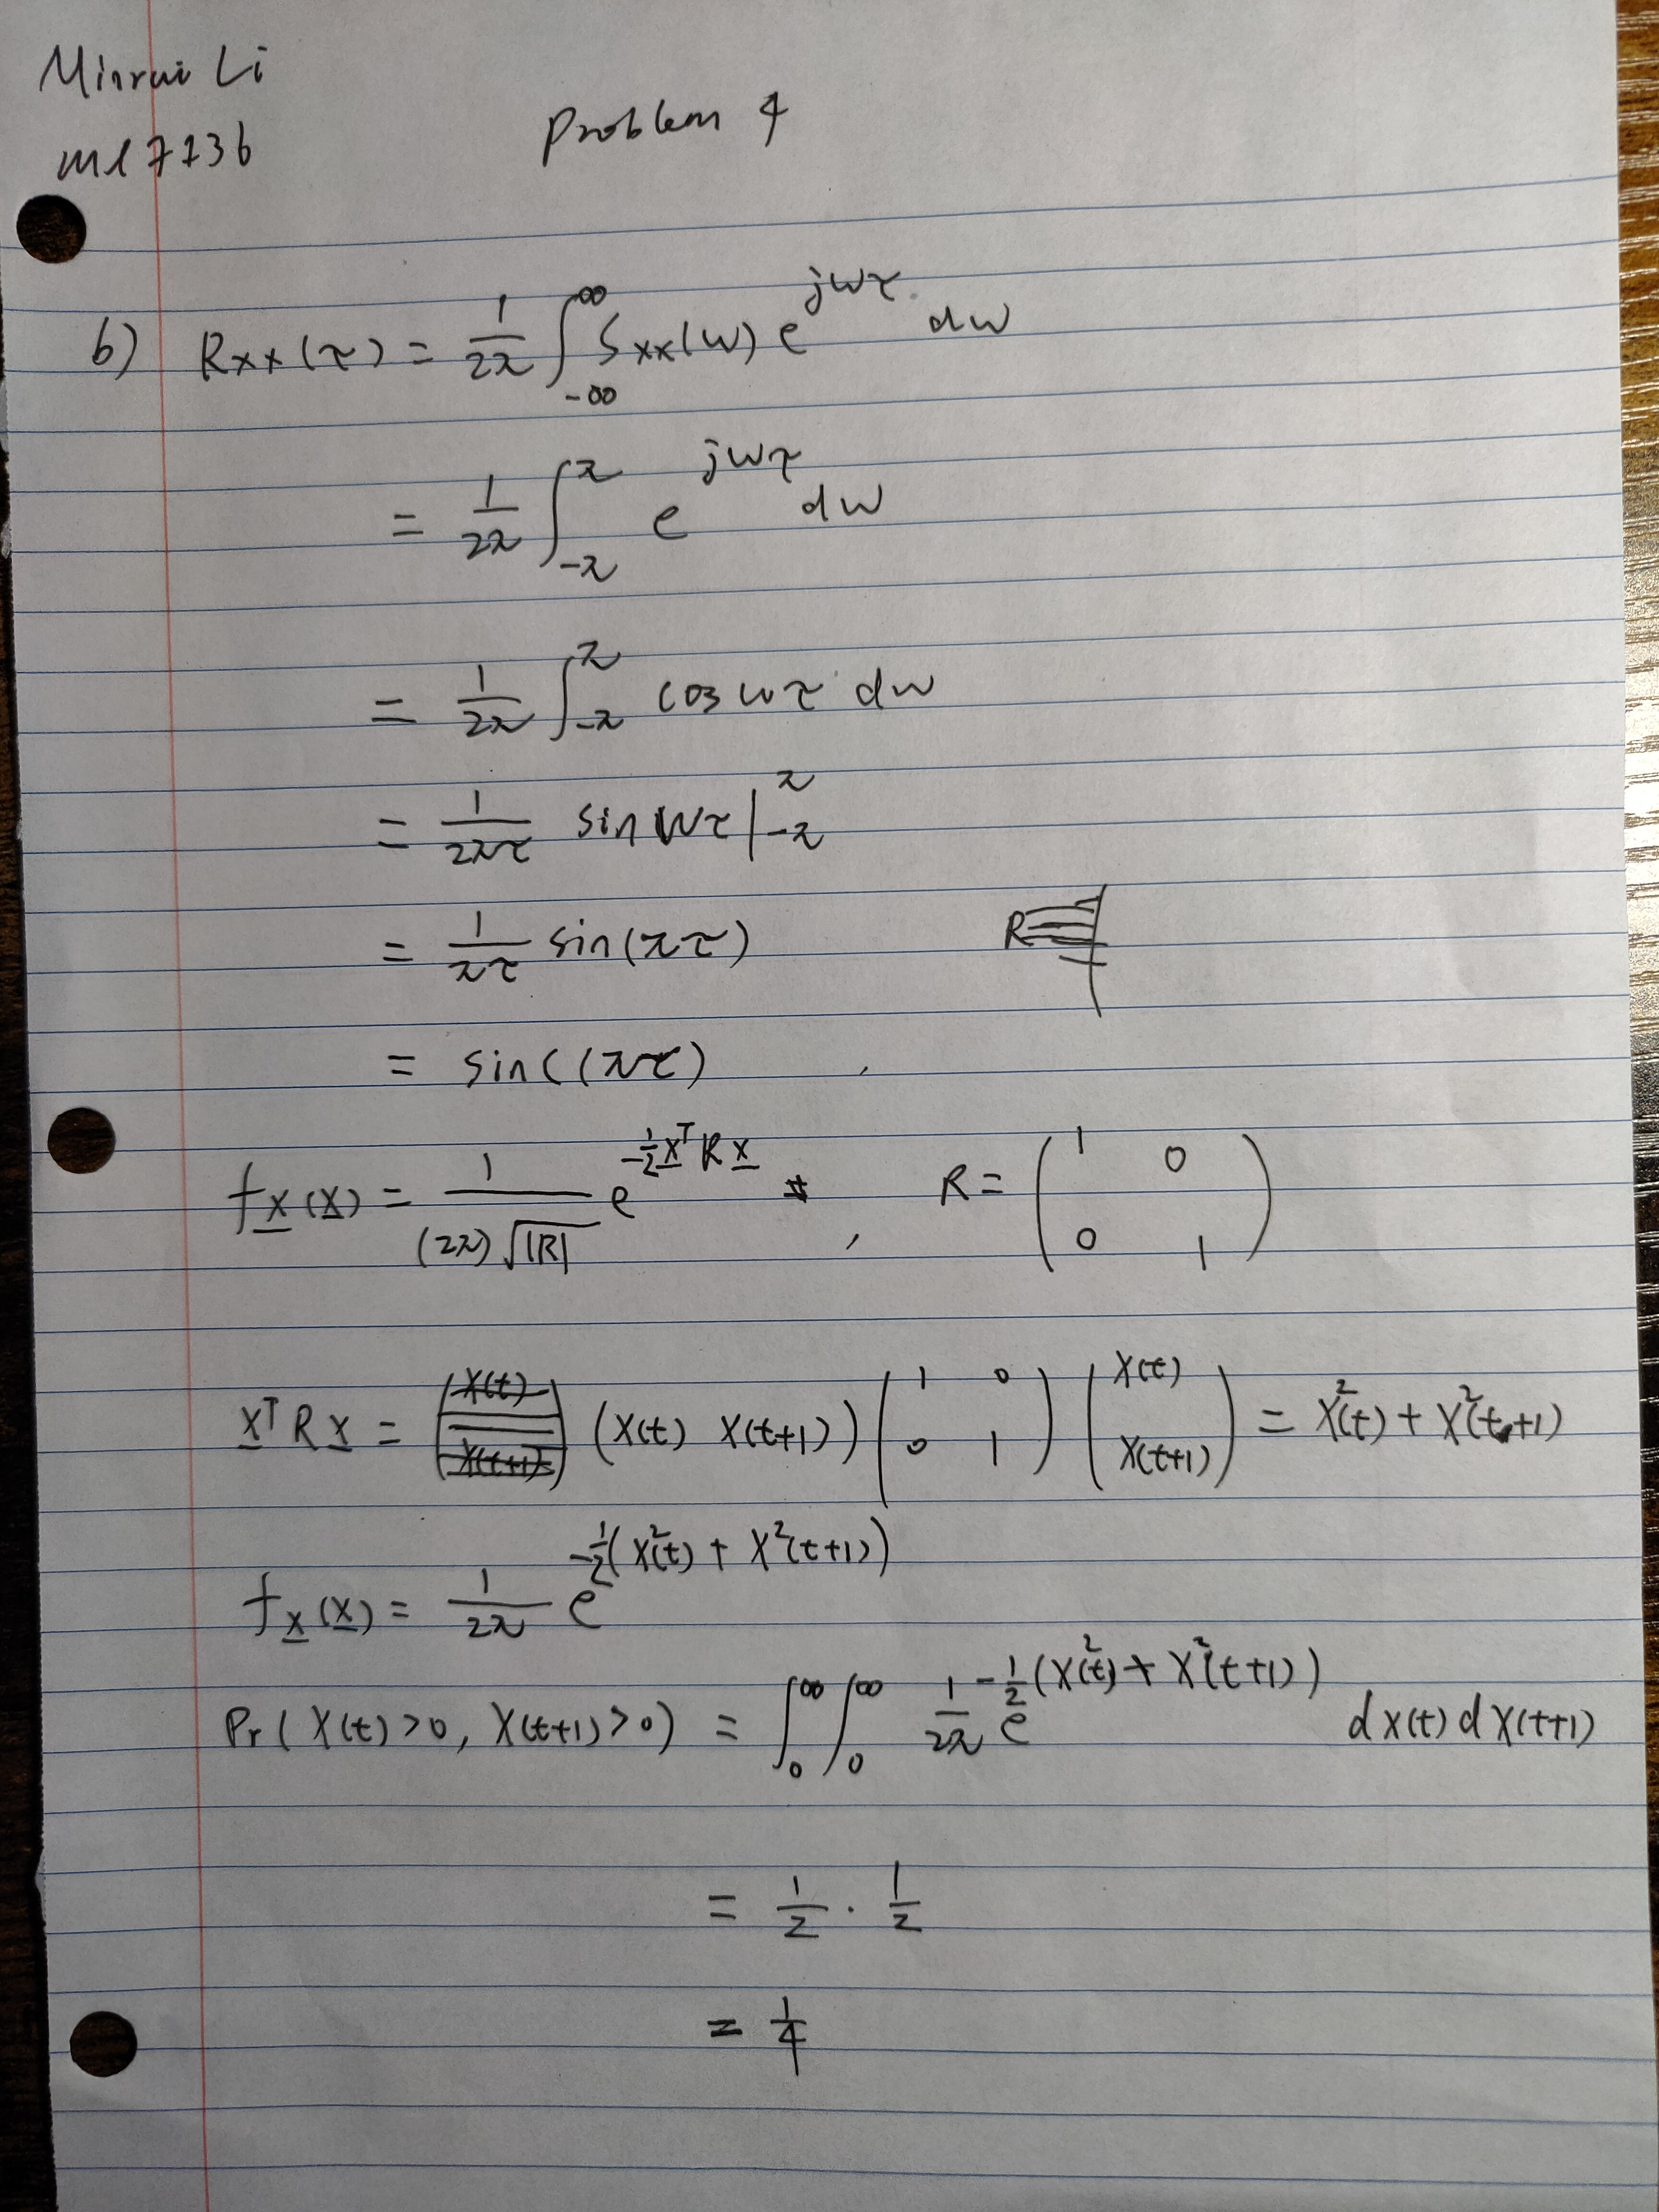 Minrui Li
ml7136
Problem 4
b) Rxx(τ) = 1/2π ∫_{-∞}^{∞} Sxx(w) e^{jwτ} dw
= 1/2π ∫_{-π}^{π} e^{jwτ} dw
= 1/2π ∫_{-π}^{π} cos wτ dw
= 1/2πτ sin wτ |_{-π}^{π}
= 1/πτ sin(πτ)
= sinc(πτ)
f_X(X) = 1/((2π)√|R|) e^{-1/2 X^T R X} , R = (1 0; 0 1)
X^T R X = (X(t) X(t+1)) (1 0; 0 1) (X(t); X(t+1)) = X²(t) + X²(t+1)
f_X(X) = 1/2π e^{-1/2(X²(t) + X²(t+1))}
Pr(X(t)>0, X(t+1)>0) = ∫_0^∞ ∫_0^∞ 1/2π e^{-1/2(X²(t) + X²(t+1))} dX(t) dX(t+1)
= 1/2 · 1/2
= 1/4